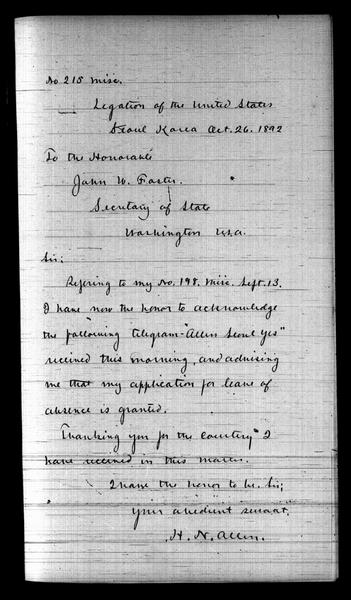 No 215 Misc.
Legation of the United States
Seoul Korea Oct. 26. 1892
To the Honorable
John W. Foster.
Secretary of State
Washington U.S.A.
Sir:
Refering to my No. 198. Misc. Sept. 13.
I have now the honor to acknowledge
the following telegram - "Allen Seoul Yes"
received this morning, and advising
me that my application for leave of
absence is granted.
Thanking you for the courtesy I
have received in this matter.
I have the honor to be. Sir;
your obedient servant.
H. N. Allen.